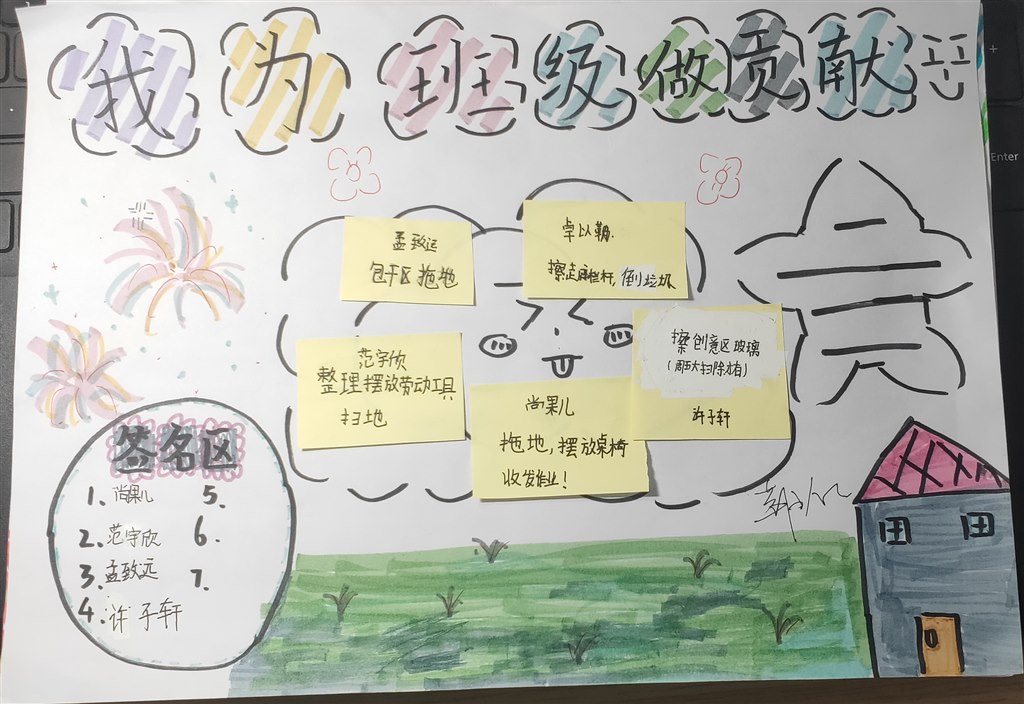 我为班级做贡献
孟致远
包干区拖地
擦走廊栏杆,倒垃圾
范宇欣
整理摆放劳动工具
扫地
擦创意区玻璃
许子轩
尚果儿
拖地,摆放桌椅
收发作业!
签名区
1.尚果儿
2.范宇欣
3.孟致远
4.许子轩
5.
6.
7.
Enter